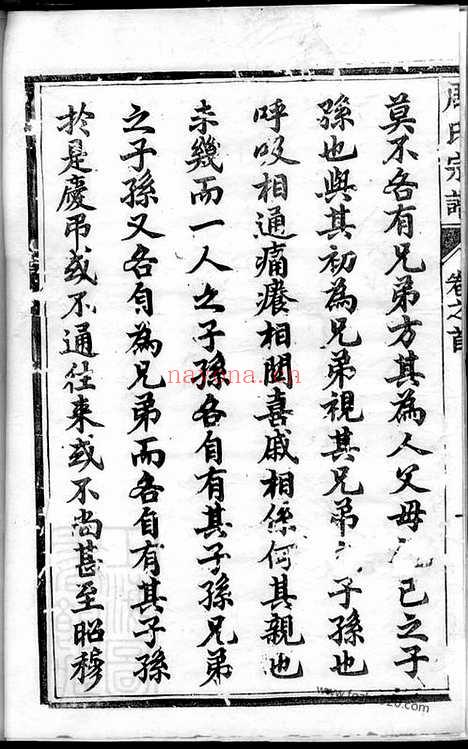 周氏宗譜
卷之首
莫不各有兄弟方其為人父母 己之子
孫也與其初為兄弟視其兄弟 子孫也
呼吸相通痛癢相關喜戚相係何其親也
未幾而一人之子孫各自有其子孫兄弟
之子孫又各自為兄弟而各自有其子孫
於是慶弔或不通往来或不尚甚至昭穆